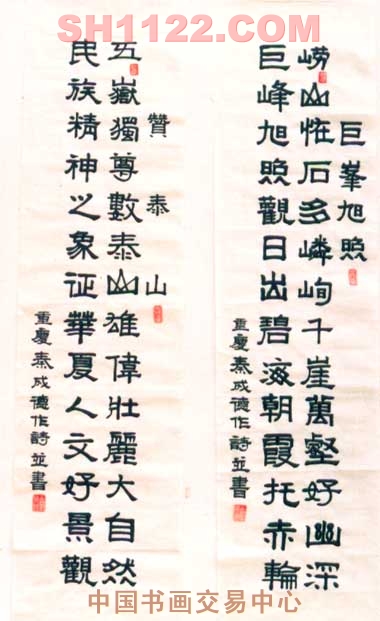 SH1122.COM
巨峯旭照
嶗山怪石多嶙峋千崖萬壑好幽深
巨峰旭照觀日出碧海朝霞托赤輪
重慶秦成德作詩並書
贊泰山
五嶽獨尊數泰山雄偉壯麗大自然
民族精神之象征華夏人文好景觀
重慶秦成德作詩並書
中国书画交易中心